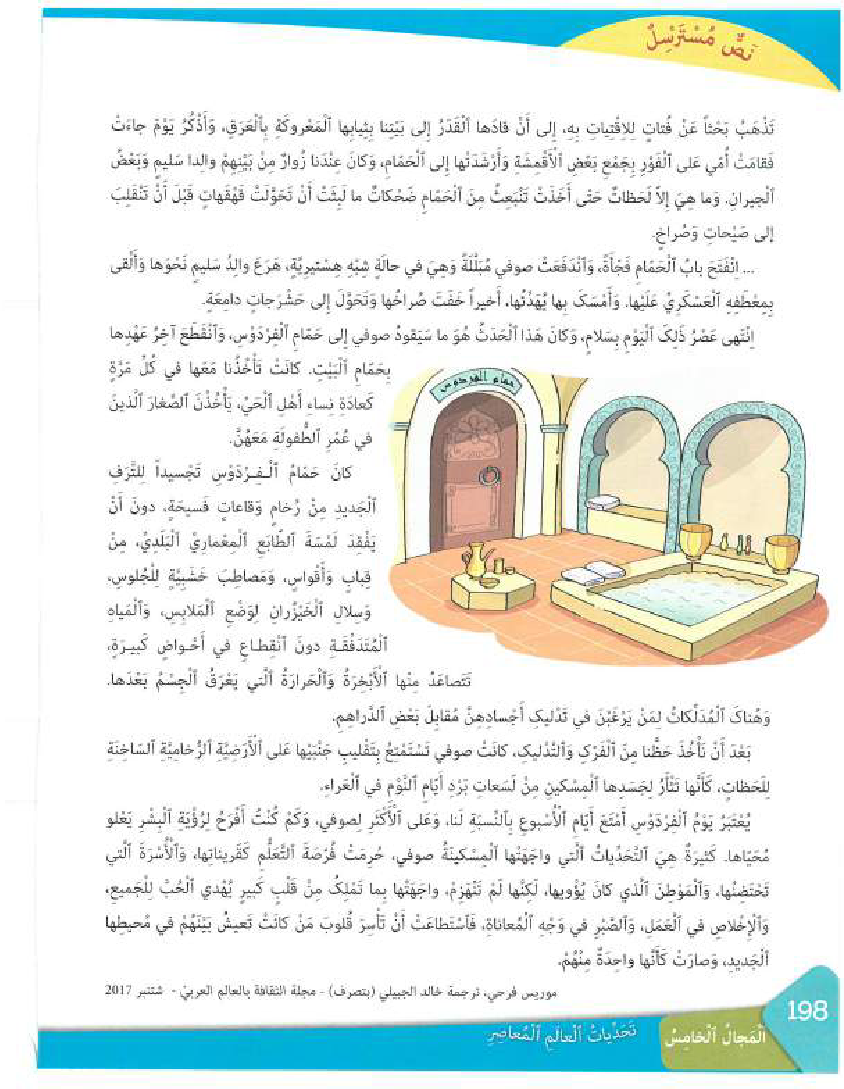 نَصٌّ مُسْتَرْسِلٌ
تَذْهَبُ بَحْثاً عَنْ فُتاتٍ لِلِاقْتِياتِ بِهِ، إِلى أَنْ قادَها ٱلْقَدَرُ إِلى بَيْتِنا بِثِيابِها ٱلْمَعْروكَةِ بِٱلْعَرَقِ، وَأَذْكُرُ يَوْمَ جاءَتْ
فَقامَتْ أُمّي عَلى ٱلْفَوْرِ بِجَمْعِ بَعْضِ ٱلْأَقْمِشَةِ وَأَرْشَدَتْها إِلى ٱلْحَمّامِ، وَكانَ عِنْدَنا زُوارٌ مِنْ بَيْنِهِمْ والِدا سَليمٍ وَبَعْضُ
ٱلْجيرانِ. وَما هِيَ إِلاّ لَحَظاتٌ حَتّى أَخَذَتْ تَنْبَعِثُ مِنَ ٱلْحَمّامِ ضَحِكاتٌ ما لَبِثَتْ أَنْ تَحَوَّلَتْ قَهْقَهاتٍ قَبْلَ أَنْ تَنْقَلِبَ
إِلى صَيْحاتٍ وَصُراخٍ.
... اِنْفَتَحَ بابُ ٱلْحَمّامِ فَجْأَةً، وَٱنْدَفَعَتْ صوفي مُبَلَّلَةً وَهِيَ في حالَةٍ شِبْهِ هِسْتيرِيَّةٍ، هَرَعَ والِدُ سَليمٍ نَحْوَها وَأَلْقى
بِمِعْطَفِهِ ٱلْعَسْكَرِيِّ عَلَيْها، وَأَمْسَكَ بِها يُهَدِّئُها، أَخيراً خَفَتَ صُراخُها وَتَحَوَّلَ إِلى حَشْرَجاتٍ دامِعَةٍ.
اِنْتَهى عَصْرُ ذَلِكَ ٱلْيَوْمِ بِسَلامٍ، وَكانَ هَذا ٱلْحَدَثُ هُوَ ما سَيَقودُ صوفي إِلى حَمّامِ ٱلْفِرْدَوْسِ، وَٱنْقَطَعَ آخِرُ عَهْدِها
بِحَمّامِ ٱلْبَيْتِ. كانَتْ تَأْخُذُنا مَعَها في كُلِّ مَرَّةٍ
كَعادَةِ نِساءِ أَهْلِ ٱلْحَيِّ، يَأْخُذْنَ ٱلصِّغارَ ٱلَّذينَ
في عُمْرِ ٱلطُّفولَةِ مَعَهُنَّ.
حمام الفردوس
كانَ حَمّامُ ٱلْفِرْدَوْسِ تَجْسيداً لِلتَّرَفِ
ٱلْجَديدِ مِنْ رُخامٍ وَقاعاتٍ فَسيحَةٍ، دونَ أَنْ
يَفْقِدَ لَمْسَةَ ٱلطّابَعِ ٱلْمِعْمارِيِّ ٱلْبَلَدِيِّ، مِنْ
قِبابٍ وَأَقْواسٍ، وَمَصاطِبَ خَشَبِيَّةٍ لِلْجُلوسِ،
وَسِلالِ ٱلْخَيْزُرانِ لِوَضْعِ ٱلْمَلابِسِ، وَٱلْمِياهِ
ٱلْمُتَدَفِّقَةِ دونَ ٱنْقِطاعٍ في أَحْواضٍ كَبيرَةٍ،
تَتَصاعَدُ مِنْها ٱلْأَبْخِرَةُ وَٱلْحَرارَةُ ٱلَّتي يَعْرَقُ ٱلْجِسْمُ بَعْدَها.
وَهُناكَ ٱلْمُدَلِّكاتُ لِمَنْ يَرْغَبْنَ في تَدْليكِ أَجْسادِهِنَّ مُقابِلَ بَعْضِ ٱلدَّراهِمِ.
بَعْدَ أَنْ نَأْخُذَ حَظَّنا مِنَ ٱلْفَرْكِ وَٱلتَّدْليكِ، كانَتْ صوفي تَسْتَمْتِعُ بِتَقْليبِ جَنْبَيْها عَلى ٱلْأَرْضِيَّةِ ٱلرُّخامِيَّةِ ٱلسّاخِنَةِ
لِلَحَظاتٍ، كَأَنَّها تَثْأَرُ لِجَسَدِها ٱلْمِسْكينِ مِنْ لَسَعاتِ بَرْدِ أَيّامِ ٱلنَّوْمِ في ٱلْعَراءِ.
يُعْتَبَرُ يَوْمُ ٱلْفِرْدَوْسِ أَمْتَعَ أَيّامِ ٱلْأُسْبوعِ بِٱلنِّسْبَةِ لَنا، وَعَلى ٱلْأَكْثَرِ لِصوفي، وَكَمْ كُنْتُ أَفْرَحُ لِرُؤْيَةِ ٱلْبِشْرِ يَعْلو
مُحَيّاها. كَثيرَةٌ هِيَ ٱلتَّحَدِّياتُ ٱلَّتي واجَهَتْها ٱلْمِسْكينَةُ صوفي، حُرِمَتْ فُرْصَةَ ٱلتَّعَلُّمِ كَقَريناتِها، وَٱلْأُسْرَةَ ٱلَّتي
تَحْتَضِنُها، وَٱلْمَوْطِنَ ٱلَّذي كانَ يُؤْويها، لَكِنَّها لَمْ تَنْهَزِمْ، واجَهَتْها بِما تَمْلِكُ مِنْ قَلْبٍ كَبيرٍ يُهْدي ٱلْحُبَّ لِلْجَميعِ،
وَٱلْإِخْلاصِ في ٱلْعَمَلِ، وَٱلصَّبْرِ في وَجْهِ ٱلْمُعاناةِ، فَٱسْتَطاعَتْ أَنْ تَأْسِرَ قُلوبَ مَنْ كانَتْ تَعيشُ بَيْنَهُمْ في مُحيطِها
ٱلْجَديدِ، وَصارَتْ كَأَنَّها واحِدَةٌ مِنْهُمْ.
موريس فرحي، ترجمة خالد الجبيلي (بتصرف) - مجلة الثقافة بالعالم العربي - شتنبر 2017
198
اَلْمَجالُ ٱلْخامِسُ
تَحَدِّياتُ ٱلْعالَمِ ٱلْمُعاصِرِ